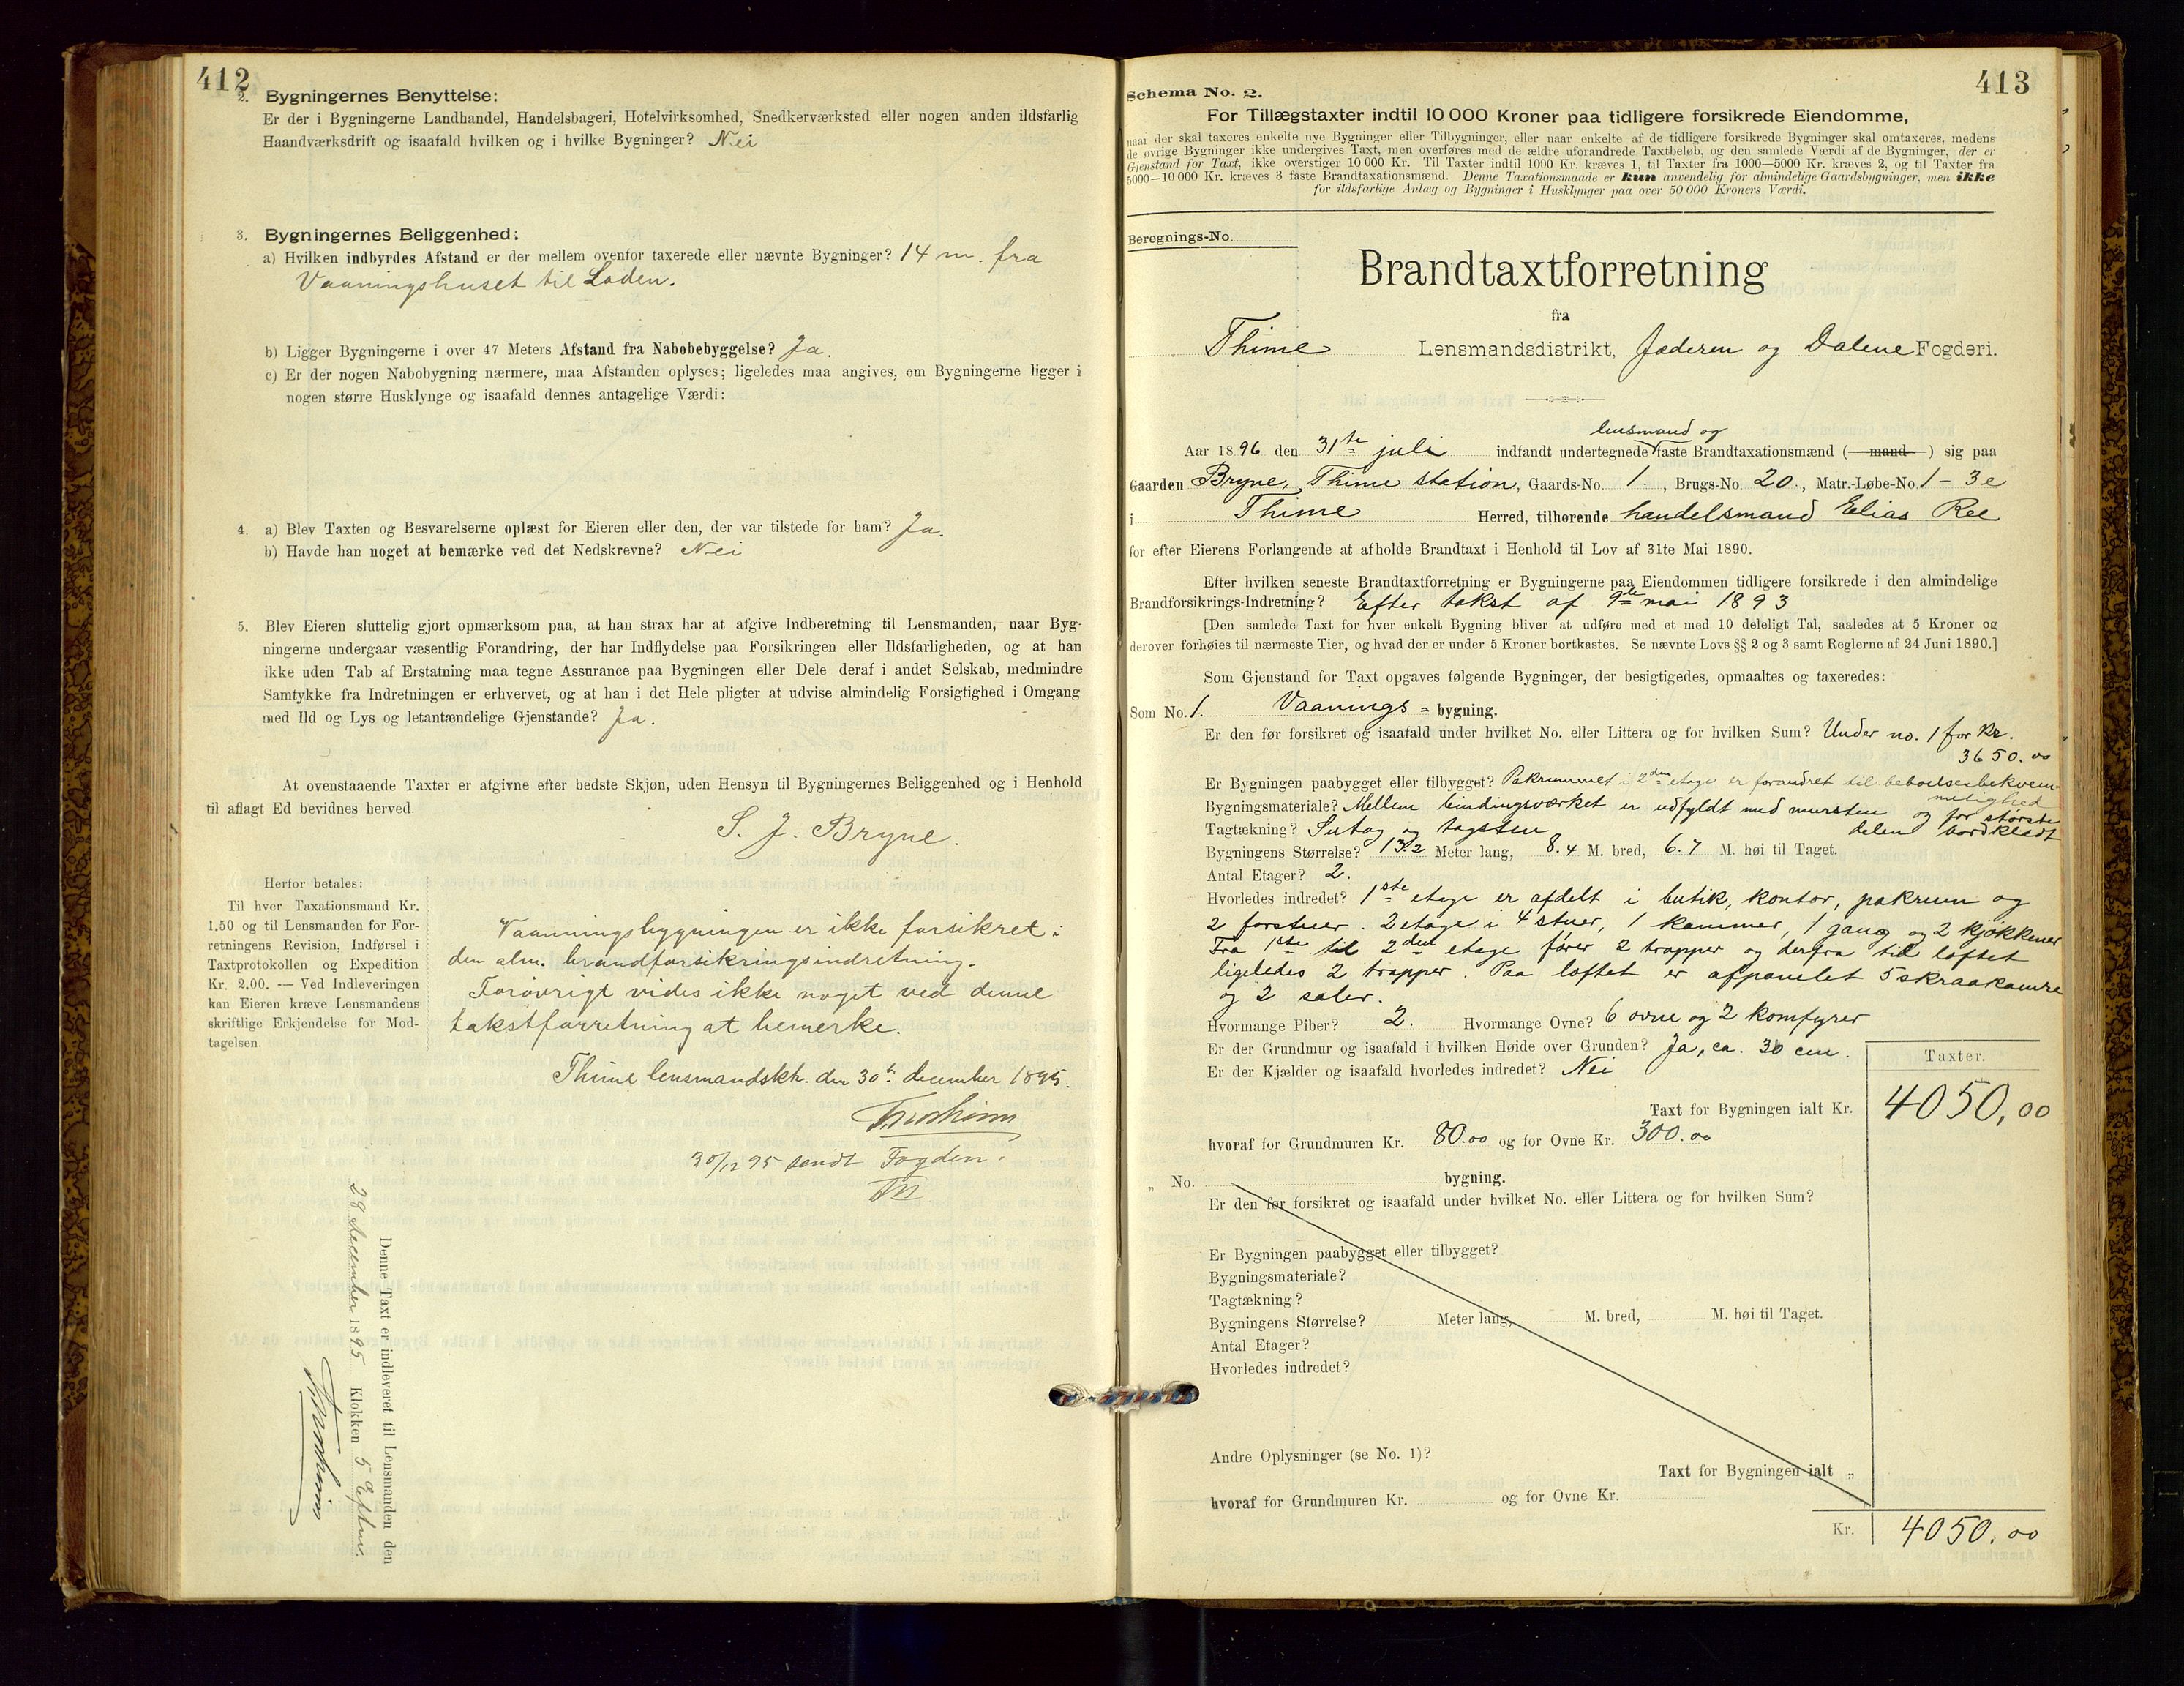 412
2. Bygningernes Benyttelse:
Er der i Bygningerne Landhandel, Handelsbageri, Hotelvirksomhed, Snedkerværksted eller nogen anden ildsfarlig
Haandværksdrift og isaafald hvilken og i hvilke Bygninger? Nei
3. Bygningernes Beliggenhed:
a) Hvilken indbyrdes Afstand er der mellem ovenfor taxerede eller nævnte Bygninger? 14 m. fra
Vaaningshuset til Laden.
b) Ligger Bygningerne i over 47 Meters Afstand fra Nabobebyggelse? Ja.
c) Er der nogen Nabobygning nærmere, maa Afstanden oplyses; ligeledes maa angives, om Bygningerne ligger i
nogen større Husklynge og isaafald dennes antagelige Værdi:
4. a) Blev Taxten og Besvarelserne oplæst for Eieren eller den, der var tilstede for ham? Ja.
b) Havde han noget at bemærke ved det Nedskrevne? Nei
5. Blev Eieren sluttelig gjort opmærksom paa, at han strax har at afgive Indberetning til Lensmanden, naar Byg-
ningerne undergaar væsentlig Forandring, der har Indflydelse paa Forsikringen eller Ildsfarligheden, og at han
ikke uden Tab af Erstatning maa tegne Assurance paa Bygningen eller Dele deraf i andet Selskab, medmindre
Samtykke fra Indretningen er erhvervet, og at han i det Hele pligter at udvise almindelig Forsigtighed i Omgang
med Ild og Lys og letantændelige Gjenstande? Ja.
At ovenstaaende Taxter er afgivne efter bedste Skjøn, uden Hensyn til Bygningernes Beliggenhed og i Henhold
til aflagt Ed bevidnes herved.
S. J. Bryne.
Herfor betales:
Til hver Taxationsmand Kr.
1.50 og til Lensmanden for For-
retningens Revision, Indførsel i
Taxtprotokollen og Expedition
Kr. 2.00. — Ved Indleveringen
kan Eieren kræve Lensmandens
skriftlige Erkjendelse for Mod-
tagelsen.
Vaaningsbygningen er ikke forsikret i
den alm. brandforsikringsindretning.
Forøvrigt vides ikke noget ved denne
takstforretning at bemerke.
Thime lensmandsktr. den 30te december 1895.
30/12 95 sendt Fogden.
Denne Taxt er indleveret til Lensmanden den
29 december 1895 Klokken 5 Efterm.
413
Schema No. 2.
For Tillægstaxter indtil 10 000 Kroner paa tidligere forsikrede Eiendomme,
naar der skal taxeres enkelte nye Bygninger eller Tilbygninger, eller naar enkelte af de tidligere forsikrede Bygninger skal omtaxeres, medens
de øvrige Bygninger ikke undergives Taxt, men overføres med de ældre uforandrede Taxtbeløb, og den samlede Værdi af de Bygninger, der er
Gjenstand for Taxt, ikke overstiger 10 000 Kr. Til Taxter indtil 1000 Kr. kræves 1, til Taxter fra 1000—5000 Kr. kræves 2, og til Taxter fra
5000—10 000 Kr. kræves 3 faste Brandtaxationsmænd. Denne Taxationsmaade er kun anvendelig for almindelige Gaardsbygninger, men ikke
for ildsfarlige Anlæg og Bygninger i Husklynger paa over 50 000 Kroners Værdi.
Beregnings-No.
Brandtaxtforretning
fra
Thime Lensmandsdistrikt, Jæderen og Dalene Fogderi.
lensmand og
Aar 1896 den 31te juli indfandt undertegnede faste Brandtaxationsmænd (mand) sig paa
Gaarden Bryne, Thime station, Gaards-No. 1., Brugs-No. 20., Matr.-Løbe-No. 1 - 3e
i Thime Herred, tilhørende handelsmand Elias Ree
for efter Eierens Forlangende at afholde Brandtaxt i Henhold til Lov af 31te Mai 1890.
Efter hvilken seneste Brandtaxtforretning er Bygningerne paa Eiendommen tidligere forsikrede i den almindelige
Brandforsikrings-Indretning? Efter takst af 9de mai 1893
[Den samlede Taxt for hver enkelt Bygning bliver at udføre med et med 10 deleligt Tal, saaledes at 5 Kroner og
derover forhøies til nærmeste Tier, og hvad der er under 5 Kroner bortkastes. Se nævnte Lovs §§ 2 og 3 samt Reglerne af 24 Juni 1890.]
Som Gjenstand for Taxt opgaves følgende Bygninger, der besigtigedes, opmaaltes og taxeredes:
Som No. 1. Vaanings - bygning.
Er den før forsikret og isaafald under hvilket No. eller Littera og for hvilken Sum? Under no. 1 for kr.
3650.00
Er Bygningen paabygget eller tilbygget? Pakrummet i 2den etage er forandret til beboelsesbekvem-
melighed
Bygningsmateriale? Mellem bindingsværket er udfyldt med mursten og for største
delen bordklædt
Tagtækning? Sutag og tagsten
Bygningens Størrelse? 13.2 Meter lang, 8.4 M. bred, 6.7 M. høi til Taget.
Antal Etager? 2.
Hvorledes indredet? 1ste etage er afdelt i butik, kontor, pakrum og
2 forstuer. 2 etage i 4 stuer, 1 kammer, 1 gang og 2 kjøkkener
Fra 1ste til 2den etage fører 2 trapper og derfra til loftet
ligeledes 2 trapper. Paa loftet er afpanelet 5 skraakamre
og 2 saler.
Hvormange Piber? 2. Hvormange Ovne? 6 ovne og 2 komfyrer
Er der Grundmur og isaafald i hvilken Høide over Grunden? Ja, ca. 30 cm.
Er der Kjælder og isaafald hvorledes indredet? Nei
Taxter.
Taxt for Bygningen ialt Kr. 4050,00
hvoraf for Grundmuren Kr. 80.00 og for Ovne Kr. 300.00
„ No. bygning.
Er den før forsikret og isaafald under hvilket No. eller Littera og for hvilken Sum?
Er Bygningen paabygget eller tilbygget?
Bygningsmateriale?
Tagtækning?
Bygningens Størrelse? Meter lang, M. bred, M. høi til Taget.
Antal Etager?
Hvorledes indredet?
Andre Oplysninger (se No. 1)?
Taxt for Bygningen ialt „
hvoraf for Grundmuren Kr. og for Ovne Kr.
Kr. 4050.00